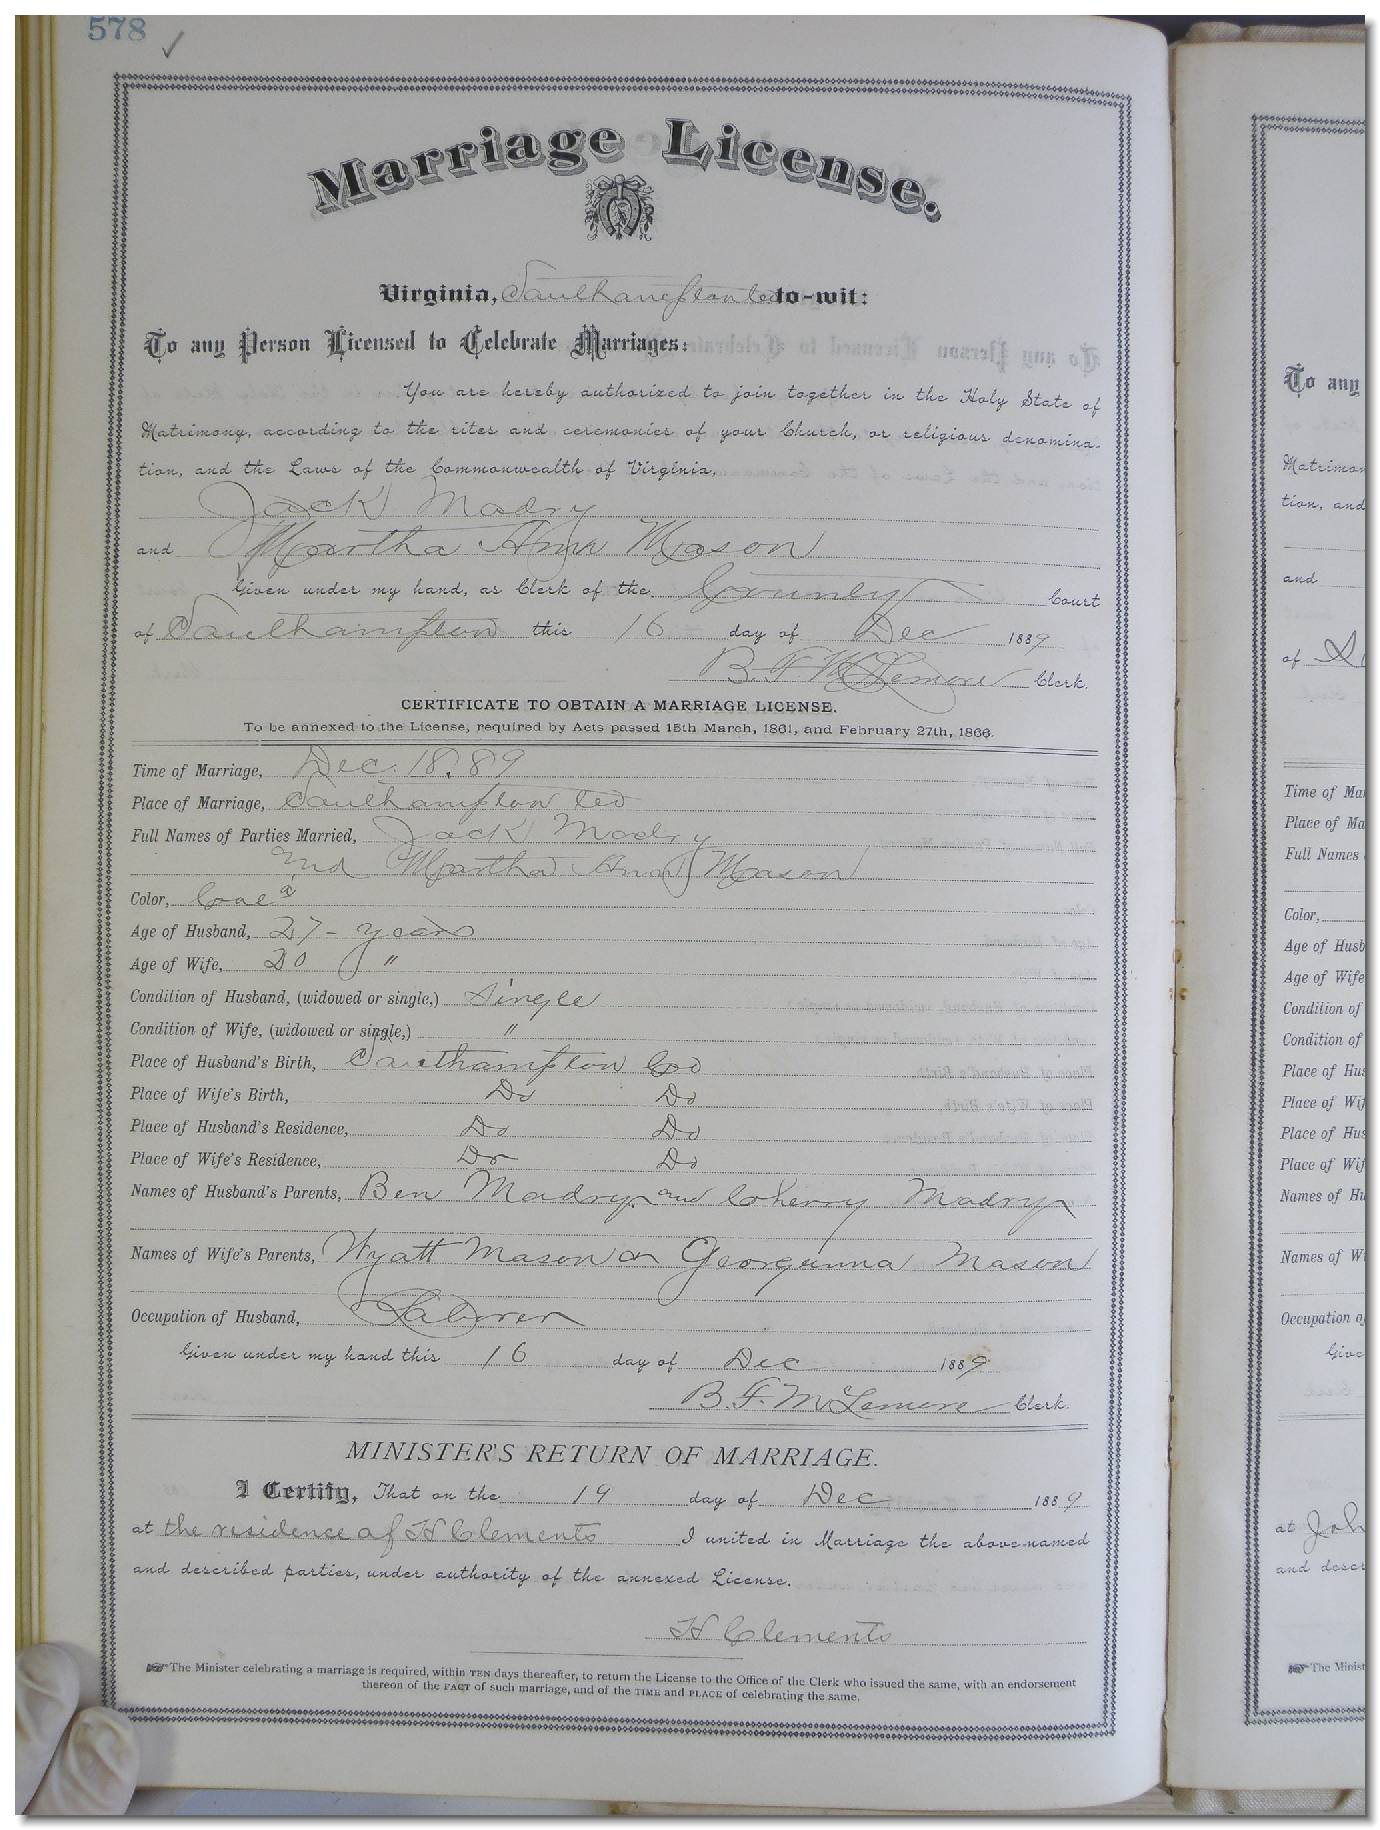 578 ✓
Marriage License.
Virginia, Southampton Co to-wit:
To any Person Licensed to Celebrate Marriages:
You are hereby authorized to join together in the Holy State of
Matrimony, according to the rites and ceremonies of your Church, or religious denomina-
tion, and the Laws of the Commonwealth of Virginia,
Jack Madry
and Martha Ann Mason
Given under my hand, as Clerk of the County Court
of Southampton this 16 day of Dec 1889
B. F. McLemore Clerk.
CERTIFICATE TO OBTAIN A MARRIAGE LICENSE.
To be annexed to the License, required by Acts passed 15th March, 1861, and February 27th, 1866.
Time of Marriage, Dec. 18. 89
Place of Marriage, Southampton Co
Full Names of Parties Married, Jack Madry
and Martha Ann Mason
Color, Cold
Age of Husband, 27 - years
Age of Wife, 20 "
Condition of Husband, (widowed or single,) Single
Condition of Wife, (widowed or single,) "
Place of Husband's Birth, Southampton Co
Place of Wife's Birth, Do Do
Place of Husband's Residence, Do Do
Place of Wife's Residence, Do Do
Names of Husband's Parents, Ben Madry and Cherry Madry
Names of Wife's Parents, Wyatt Mason & Georganna Mason
Occupation of Husband, Laborer
Given under my hand this 16 day of Dec 1889
B. F. McLemore Clerk.
MINISTER'S RETURN OF MARRIAGE.
I Certify, That on the 19 day of Dec 1889
at the residence of H Clements I united in Marriage the above-named
and described parties, under authority of the annexed License.
H Clements
☞ The Minister celebrating a marriage is required, within TEN days thereafter, to return the License to the Office of the Clerk who issued the same, with an endorsement
thereon of the FACT of such marriage, and of the TIME and PLACE of celebrating the same.
To any
Matrimon
tion, and
and
of
Time of Ma
Place of Ma
Full Names
Color,
Age of Husb
Age of Wife
Condition of
Condition of
Place of Hus
Place of Wif
Place of Hus
Place of Wif
Names of Hu
Names of W
Occupation o
Give
at Joh
and descr
☞ The Minist